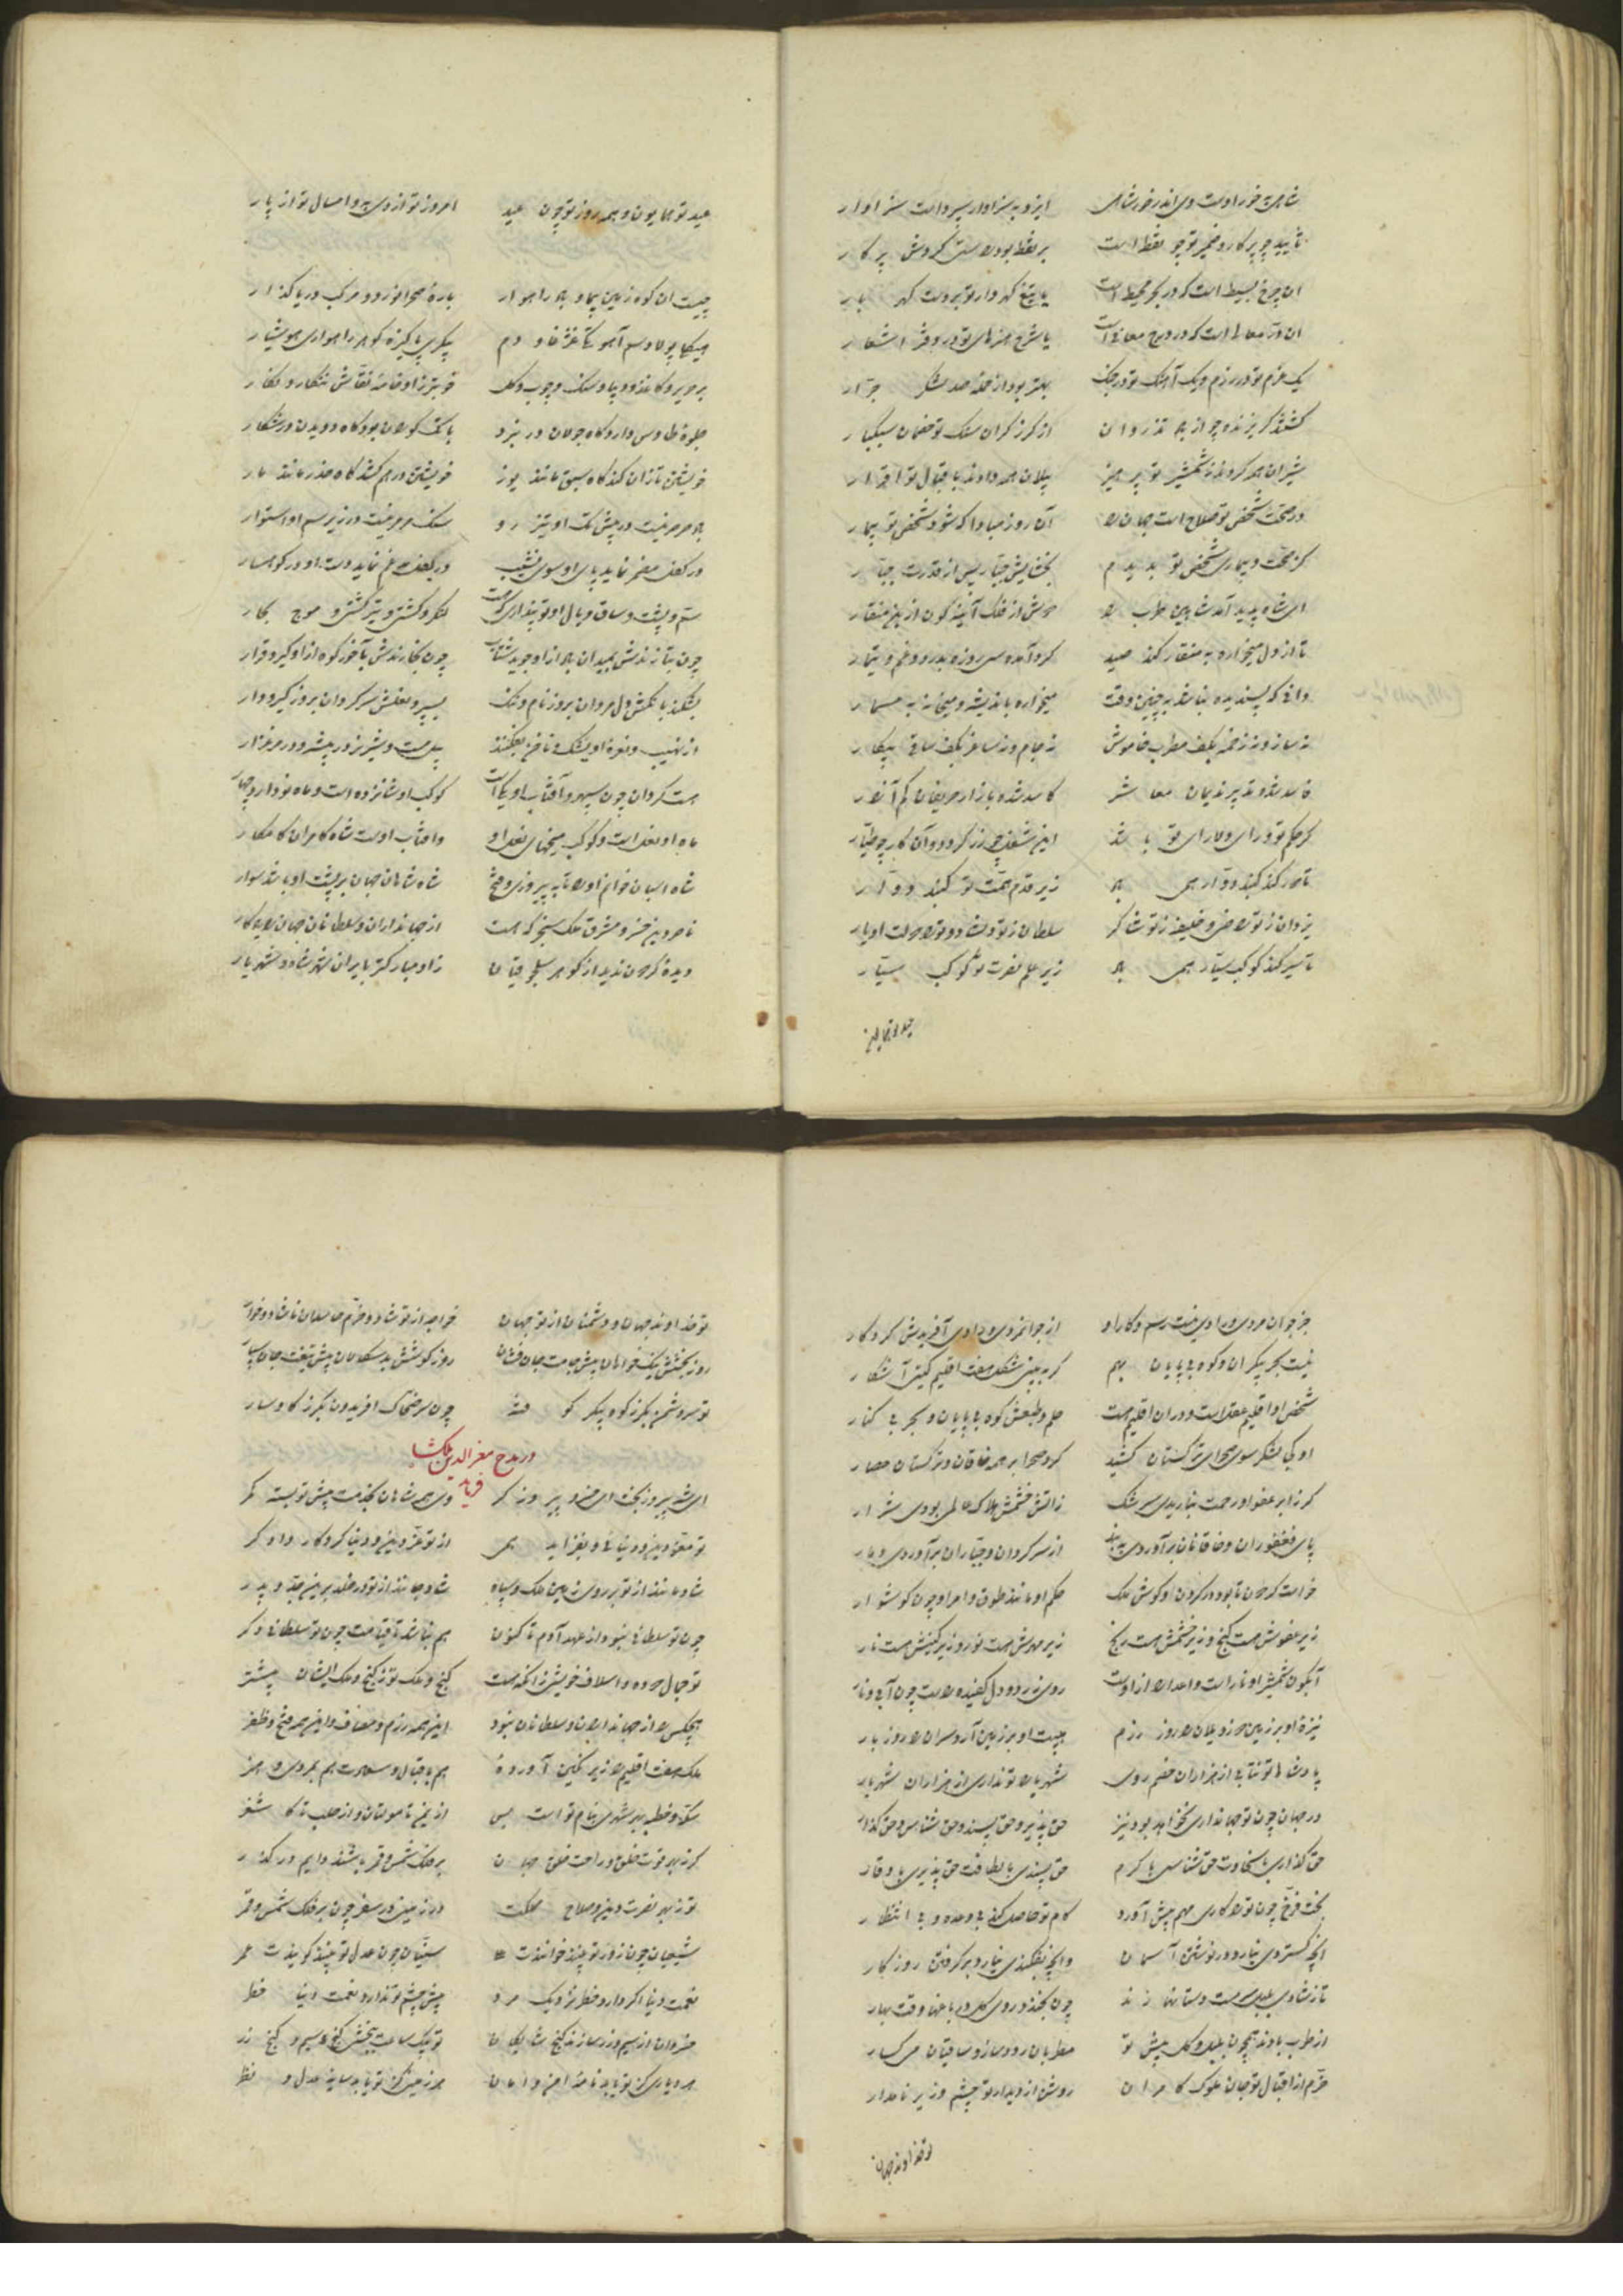 شاهی خور اوست وی اندر خور شاهی ایزد به سزاوار سپرد است سزاوار
تأیید چو پرکار و ضمیر تو چو نقطه است بر نقطه بود راست گردش پرکار
آن چرخ بسیط است که در بحر محیط است یا تیغ گهردار تو بر دست گهربار
آن در معالی است که در درج معانی است یا شرح هنرهای تو در دفتر اشعار
یک عزم تو در رزم و یک آهنگ تو در جنگ بهتر بود از حمله صد لشکر جرار
گشتند گریزنده چو از باز تذروان از گرز گران سنگ تو خصمان سبکسار
شیران همه کردند ز شمشیر تو پرهیز پیلان همه دادند باقبال تو اقرار
در صحت شخص تو صلاح است جهان را آن روز مبادا که شود شخص تو بیمار
کز صحت و بیماری شخص تو بدیدم بخشایش جبار پس از قدرت جبار
ای شاه پدید آمد شاهین طرب را
تا از دل میخواره به منقار کند صید کرد آمده سی روزه بدر درد و غم و تیمار
دانی که پسندیده نباشد به چنین وقت میخواره باندیشه و میخانه به مسمار
نه ساز و نه زخمه بکف مطرب خاموش نه جام و نه ساغر بکف ساقی بیکار
فاسد شده تدبیر ندیمان معاشر کاسد شده بازار حریفان کم آزار
گر حکم تو و رای دلارای تو باشد این شغل چو زر گردد و آن کار چو طیار
تا دور کند گنبد دوار همی باد زیر قدم همت تو گنبد دوار
یزدان ز تو راضی و خلیفه ز تو شاکر سلطان ز تو دلشاد و تو را دولت او یار
تا سیر کند کوکب سیار همی باد زیر علم نصرت تو کوکب سیار
عید تو همایون و همه روز تو چون عید امروز تو از دی به و امسال تو از پار
چیست آن کوه زمین پیما و باد راهوار باره صحرانورد و مرکب دریاگذار
هیکلی پولاد سم آهو تکی غژغاو دم پیکری پاکیزه گوهر راهواری هوشیار
بر حریر و کاغذ و دیبا و سنگ و چوب و گل خوبتر زو خامه نقاش ننگارد نگار
جلوه طاوس دارد گاه جولان در نبرد پای گوران بود گاه دویدن در شکار
خویشتن تازان کند گاه سبق مانند یوز خویشتن در هم کشد گاه حذر مانند مار
باد صرصر نیست در پیش تک او تیز رو سنگ مرمر نیست در زیر سم او استوار
سم و پشت و ساق و یال او تو پنداری که هست لنگر و کشتی و تیر کشتی و موج بحار
چون بتازندش بمیدان باد ازو جوید شتاب چون بدارندش بآخر کوه ازو گیرد قرار
بشکند بانگش دل مردان بروز نام و ننگ بسپرد نعلش سر گردان بروز گیر و دار
از نهیب و نعره او یشک و ناخن بفکنند پیل مست و شیر نر در بیشه و در مرغزار
هست گردان چون سپهر و آفتاب او یکی است کوکب او شانزده است و ماه نو دارد چهار
ماه او نعل است و کوکب میخهای نعل او وافتاب اوست شاه کامران کامکار
شاه اسبان خوانم او را تا به پیروزی و فتح شاه شاهان جهان بر پشت او باشد سوار
ناصر دین خسرو مشرق ملک سنجر که هست از جهانداران و سلطانان جهان را یادگار
دیده گردون ندید از گوهر سلجوقیان زاد مبارکتر بایران شهر شاد و شهریار
جز جوانمردی و رادی نیست رسم و کار او از جوانمردی و رادی آفریدش کردگار
نیست بحر بیکران و کوه بی پایان بهم گر ببینی شکل هفت اقلیم گیتی آشکار
شخص او اقلیم عقل است و در آن اقلیم هست حلم و طبعش کوه بی پایان و بحر بی کنار
او یکی لشکر سوی صحرای ترکستان کشید کرد صحرا بر همه خاقان ترکستان حصار
گر ز ابر عفو او رحمت نباریدی سرشک ز آتش خشمش هلاک عالمی بودی شرار
پای فغفوران و خاقانان برآوردی ز بند از سر گردان و جباران برآوردی دمار
خواست گردون تا بود در گردن و گوش ملک حکم او مانند طوق و امر او چون گوشوار
زیر عفوش هست گنج و زیر خشمش هست رنج زیر مهرش هست نور و زیر کینش هست نار
آبگون شمشیر او نار است و اعدا را ازوست روی زرد و دل کفیده راست چون آبی و نار
نیزه او بر زمین دوزد یلان را روز رزم هیبت او بر زمین آرد سران را روز بار
پادشاها تو نتابی از هزاران خصم روی شهریارا تو نداری از هزاران شهریار
در جهان چون تو جهانداری نخواهد بود نیز حق پذیر و حق پسند و حق شناس و حق گذار
حق گذاری با سخاوت حق شناسی با کرم حق پسندی با لطافت حق پذیری با وقار
بخت فرخ چون تو را کاری مهم پیش آورد کام تو حاصل کند بی وعده و بی انتظار
آنچه گستردی نیارد درنوشتن آسمان وانچه بفکندی نیارد برگرفتن روزگار
تا ز شادی بلبل سرمست دستانها زند چون بخندد روی گل در باغها وقت بهار
از طرب بادند همچون بلبل و گل پیش تو مطربان رودساز و ساقیان می گسار
خرم از اقبال تو جان ملوک کامران روشن از دیدار تو چشم وزیر نامدار
تو خداوند جهان
تو خداوند جهان و دشمنان از تو جهان
روز بخشش نیکخواهان پیش جامت جان فشان روز کوشش بدسگالان پیش تیغت جان سپار
تو سر دشمن بگرز کوه پیکر کوفته چون سر ضحاک افریدون بگرز گاوسار
در مدح معزالدین ملکشاه فرماید
ای شه پیروزبخت ای خسرو پیروزگر وی همه شاهان بخدمت پیش تو بسته کمر
تو معز دین و دنیائی و بفزاید همی از تو عز دین و دنیا کردگار دادگر
شادمانند از تو بر روی زمین ملک و سپاه شاد باشند از تو در خلد برین جد و پدر
چون تو سلطانی نبود از عهد آدم تا کنون هم نباشد تا قیامت چون تو سلطانی دگر
تو جمال دوده و اسلاف خویشی زانکه هست گنج و ملک تو ز گنج و ملک ایشان بیشتر
هیچکس را از جهانداران و سلطانان نبود این همه رزم و مصاف و این همه فتح و ظفر
ملک هفت اقلیم را زیر نگین آورده هم باقبال و سعادت هم بمردی و هنر
سکه و خطبه بهر شهری بنام تو است پس از یمن تا مولتان و از حلب تا کاشغر
گر ز بهر قوت خلق و راحت خلق جهان بر فلک شمس و قمر باشند دایم در گذر
تو ز بهر نصرت دین و صلاح مملکت در زمین در سفر چون بر فلک شمس و قمر
شیعیان چون زور تو بینند خوانندت علی سنیان چون عدل تو بینند گویندت عمر
نعمت دنیا اگر دارد خطر نزدیک مرد پیش چشم تو ندارد نعمت دنیا خطر
خسروان از سیم و زر سازند گنج شایگان تو بیک ساعت ببخشی گنج سیم و گنج زر
هر دیاری کز تو یابد نامه امن و امان هر زمینی کز تو یابد سایه عدل و نظر